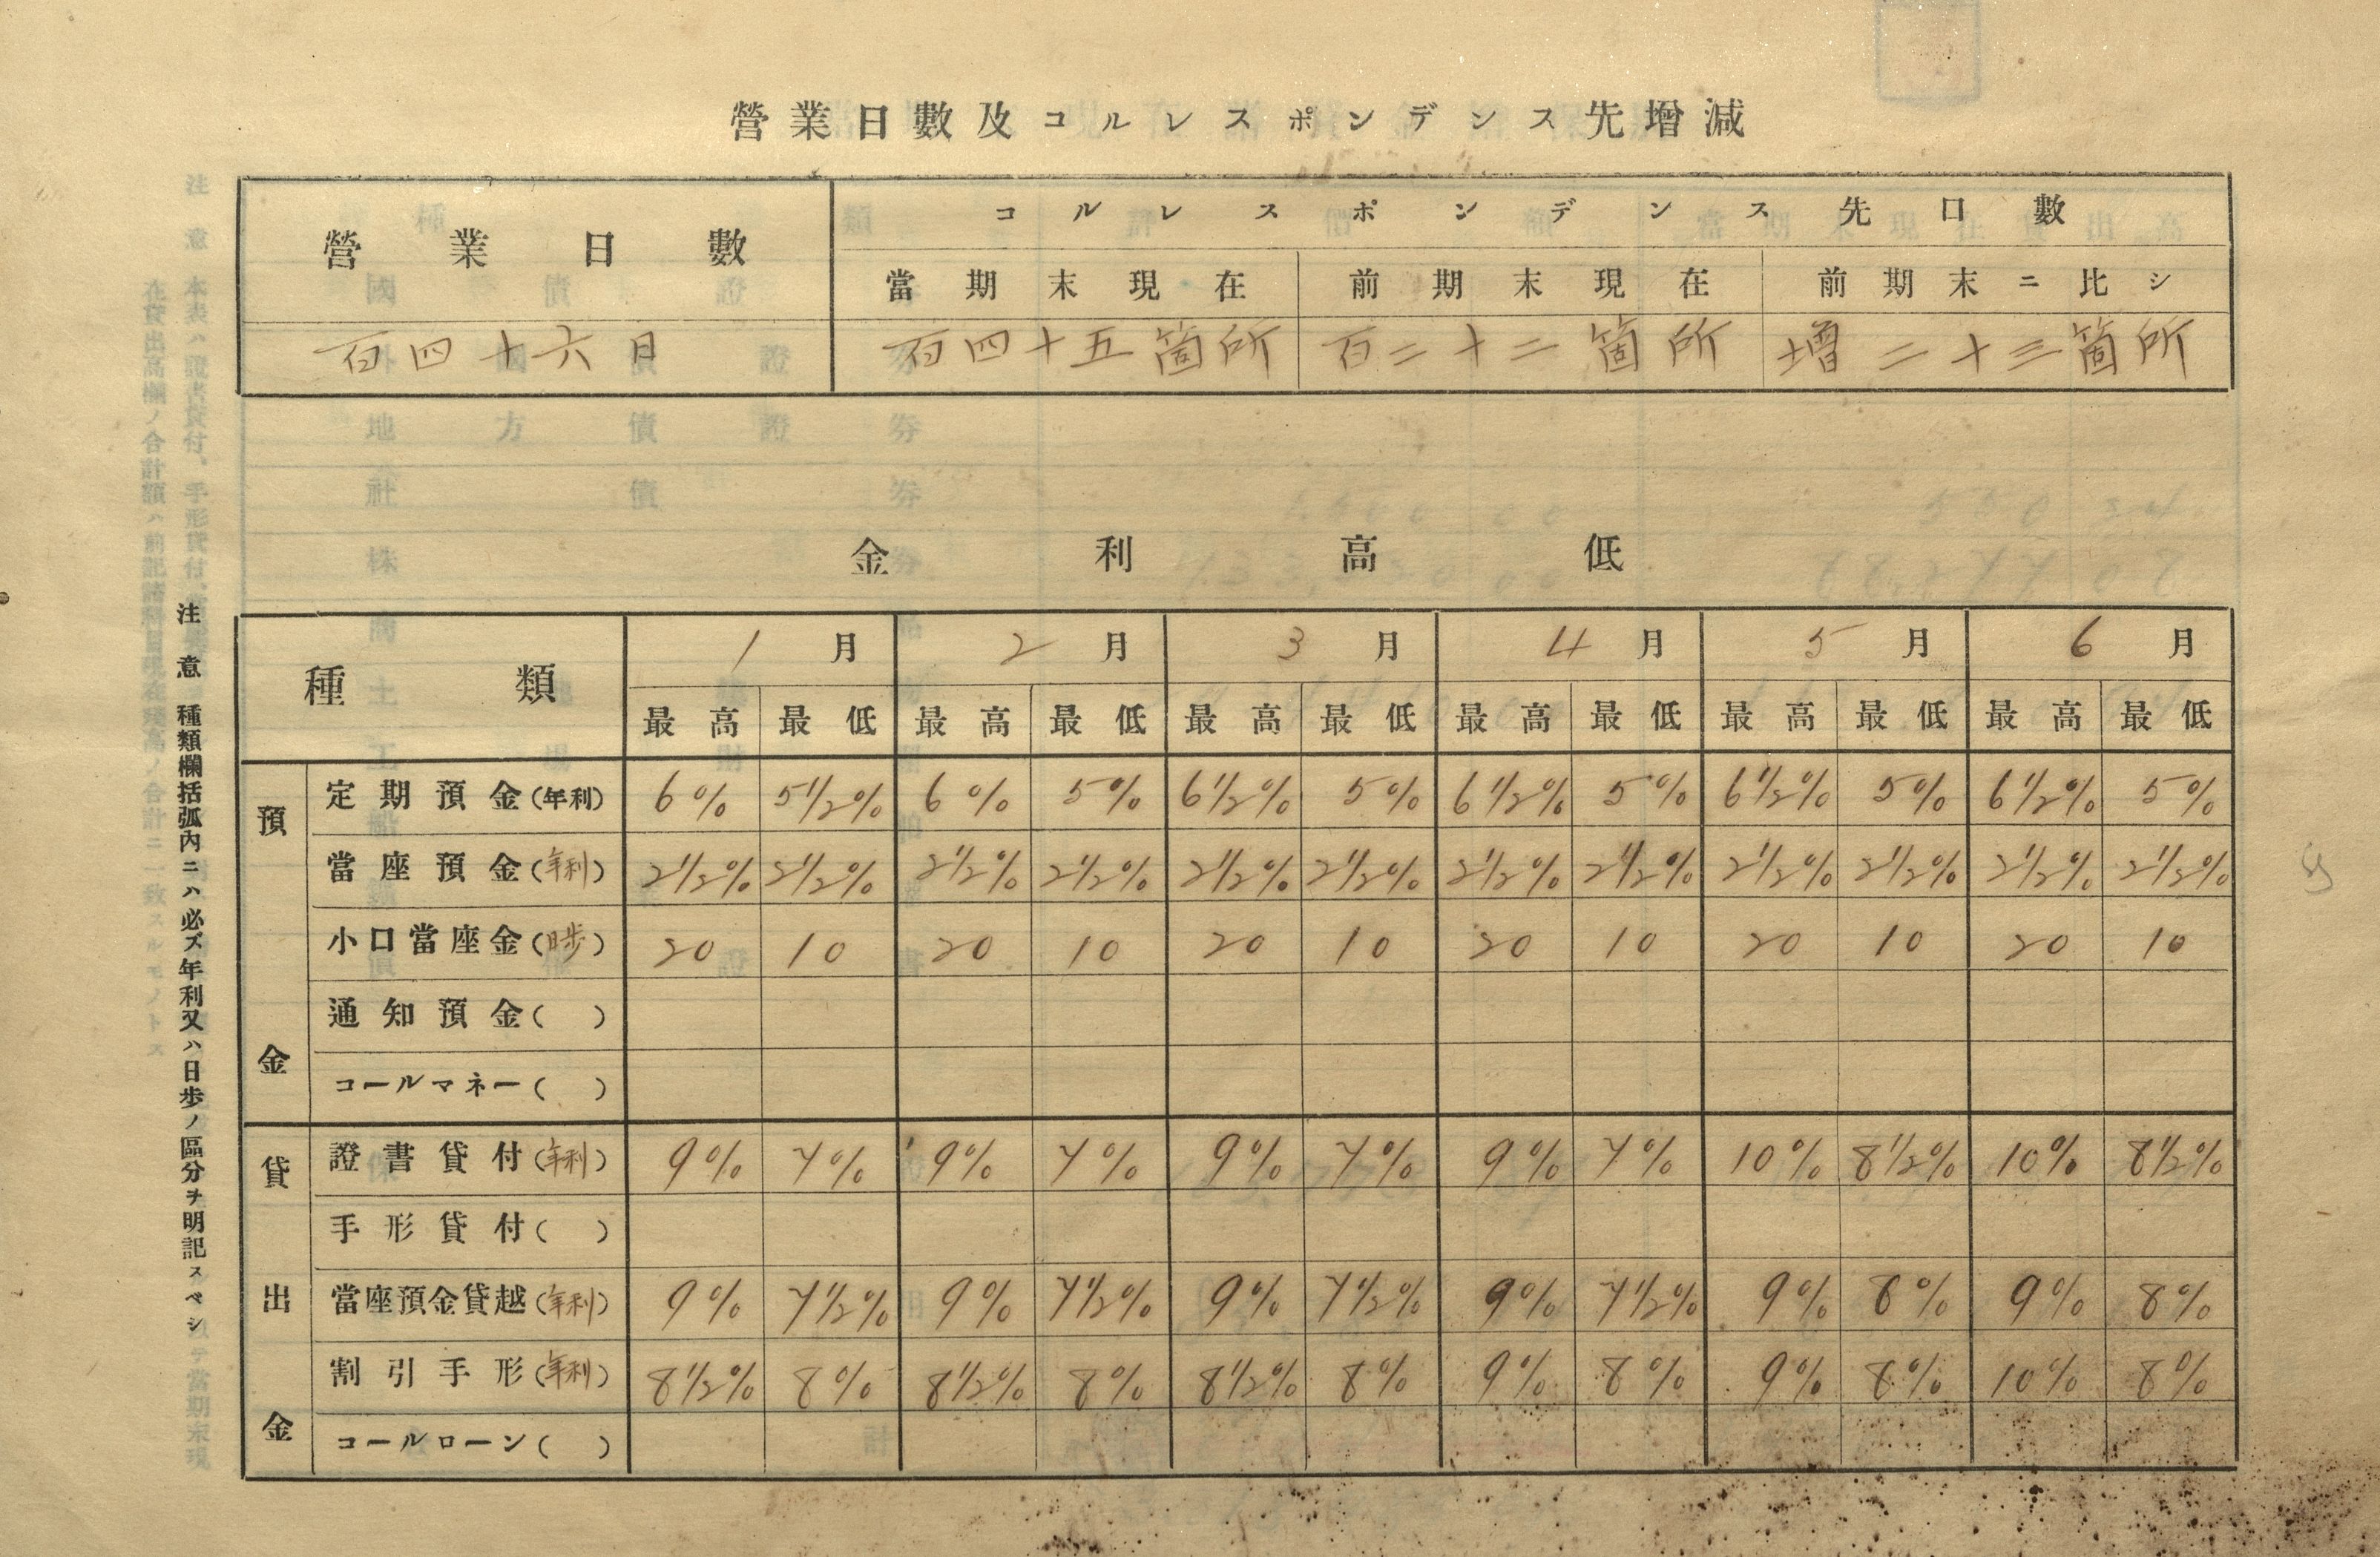 營業日數及コルレスポンデンス先增減
營業日數 コルレスポンデンス先口數
當期末現在 前期末現在 前期末ニ比シ
百四十六日 百四十五箇所 百二十二箇所 增二十三箇所
金利高低
種類 1月 2月 3月 4月 5月 6月
最高 最低 最高 最低 最高 最低 最高 最低 最高 最低 最高 最低
預金
定期預金(年利) 6% 5 1/2% 6% 5% 6 1/2% 5% 6 1/2% 5% 6 1/2% 5% 6 1/2% 5%
當座預金(年利) 2 1/2% 2 1/2% 2 1/2% 2 1/2% 2 1/2% 2 1/2% 2 1/2% 2 1/2% 2 1/2% 2 1/2% 2 1/2% 2 1/2%
小口當座金(日歩) 20 10 20 10 20 10 20 10 20 10 20 10
通知預金( )
コールマネー( )
貸出金
證書貸付(年利) 9% 7% 9% 7% 9% 7% 9% 7% 10% 8 1/2% 10% 8 1/2%
手形貸付( )
當座預金貸越(年利) 9% 7 1/2% 9% 7 1/2% 9% 7 1/2% 9% 7 1/2% 9% 8% 9% 8%
割引手形(年利) 8 1/2% 8% 8 1/2% 8% 8 1/2% 8% 9% 8% 9% 8% 10% 8%
コールローン( )
注意 種類欄括弧內ニハ必ズ年利又ハ日歩ノ區分ヲ明記スベシ